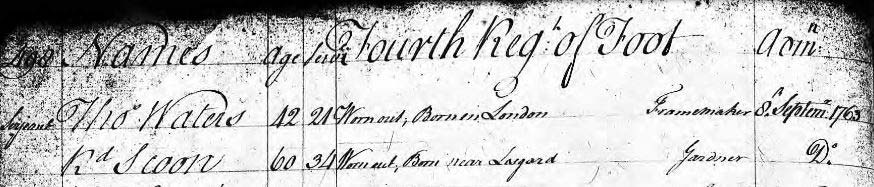 498 Names Age Servi Fourth Regt. of Foot Admn.
Serjeant Thos. Waters 42 21 Worn out, Born in London Framemaker 8 Septemr. 1763
Rd Scoon 60 34 Worn out, Born near Gardner Do.